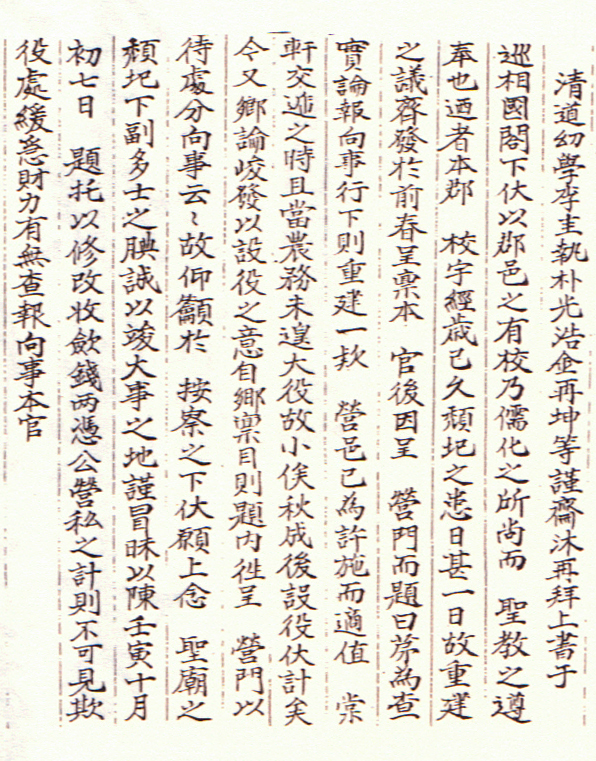 清道幼學李圭執朴光浩金再坤等謹齋沐再拜上書于
巡相國閤下伏以郡邑之有校乃儒化之所尚而 聖教之遵
奉也迺者本郡 校宇經歲已久頹圮之患日甚一日故重建
之議齊發於前春呈稟本 官後因呈 營門而題曰第為查
實論報向事行下則重建一款 營邑已為許施而適值 棠
軒交遞之時且當農務未遑大役故小俟秋成後設役伏計矣
今又鄉論峻發以設役之意自鄉稟目則題內徃呈 營門以
待處分向事云〻故仰籲於 按察之下伏願上念 聖廟之
頹圮下副多士之腆誠以竣大事之地謹冒昧以陳壬寅十月
初七日 題托以修改收斂錢兩憑公營私之計則不可見欺
役處緩急財力有無查報向事本官